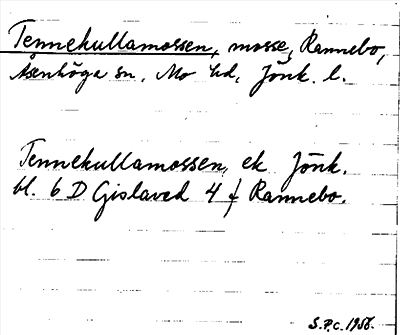 Tennekullamossen, mosse, Rannebo,
Åsenhöga sn, Mo hd, Jönk. l.
Tennekullamossen, ek Jönk.
bl. 6 D Gislaved 4 f Rannebo.
S.P.C. 1956.